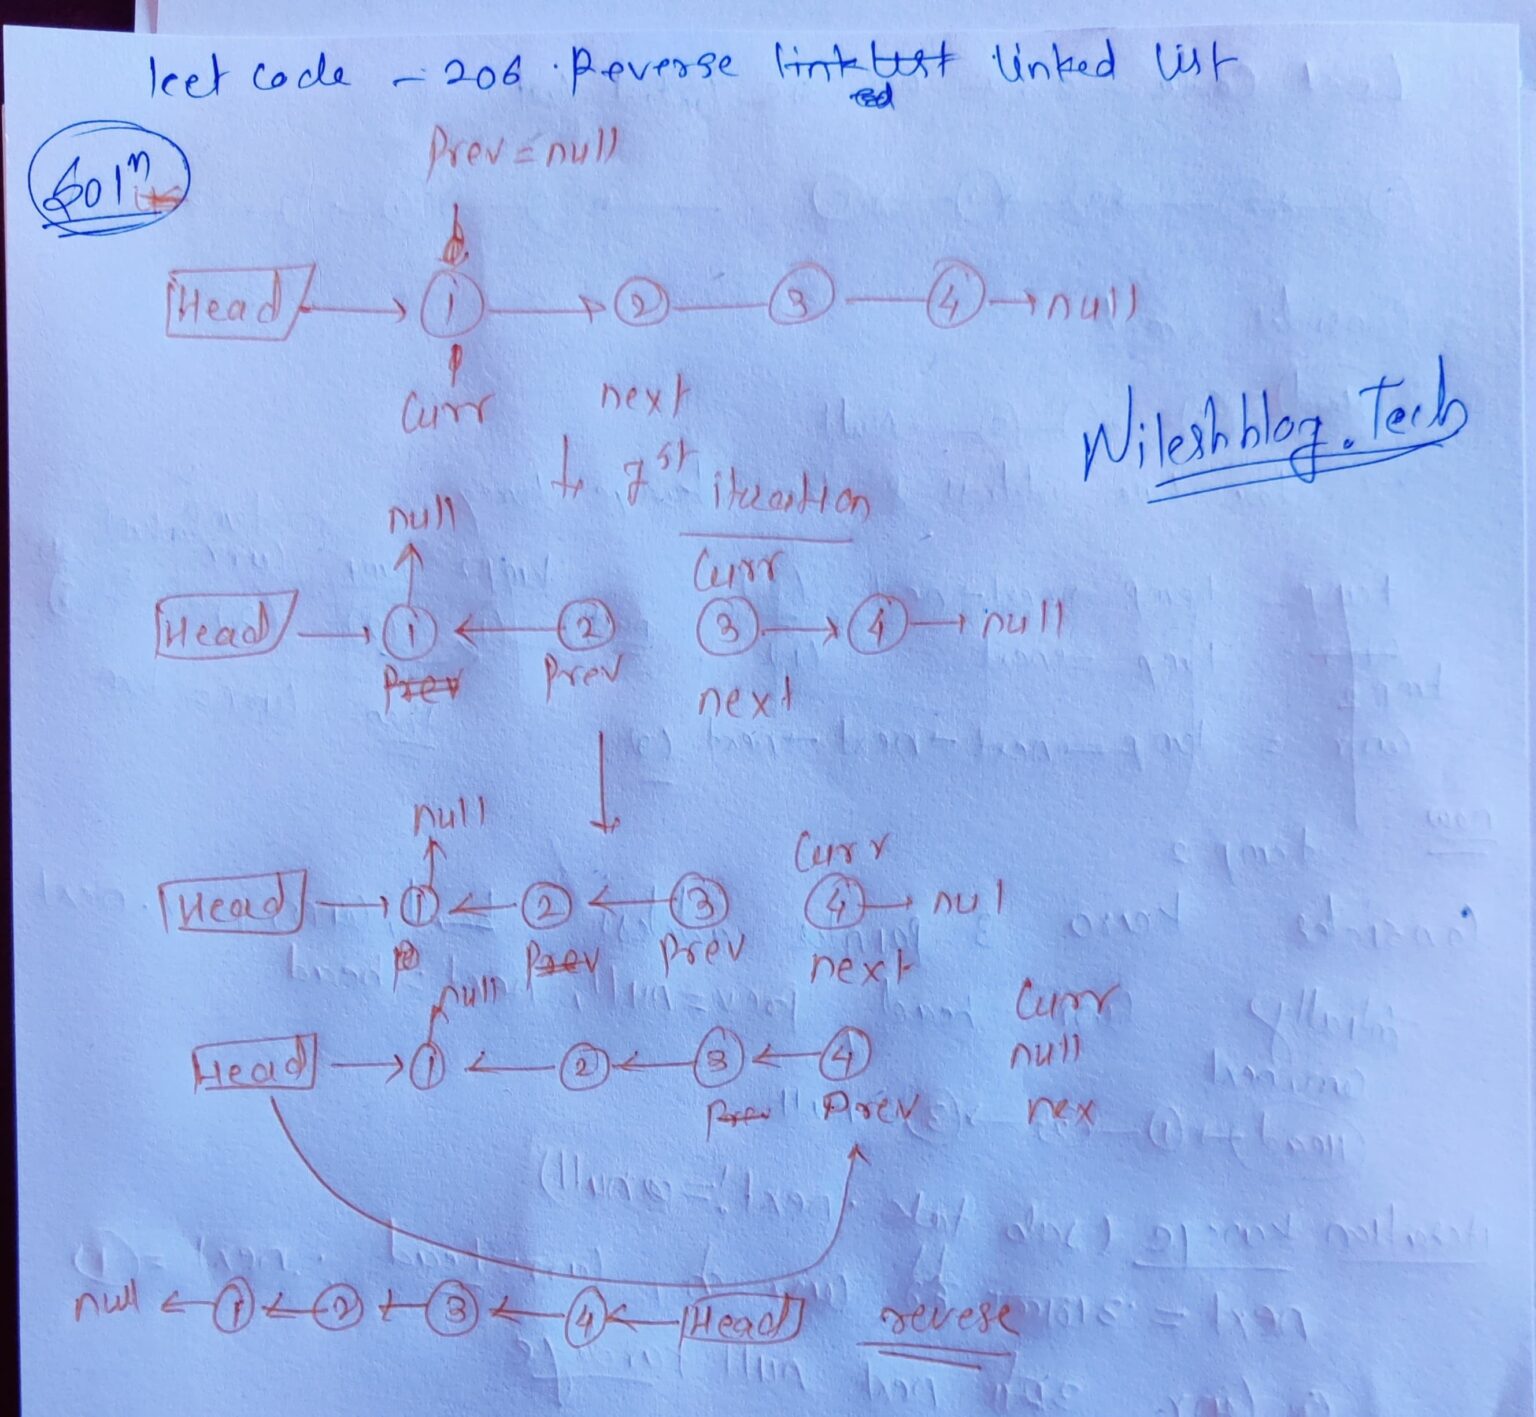 leet code - 206 . Reverse linklist linked list
ed
Soln
Prev = null
Head 1 2 3 4 null
Curr next
1st iteration
null
Curr
Head 1 2 3 4 null
Prev Prev next
null
Curr
Head 1 2 3 4 nul
p Prev Prev next
null
Curr
Head 1 2 3 4 null
Prev Prev nex
null 1 2 3 4 Head revese
Nileshblog.Tech